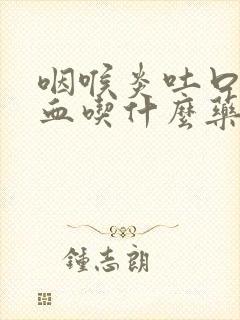 咽喉炎吐口
血喫什麼藥
鍾志朗